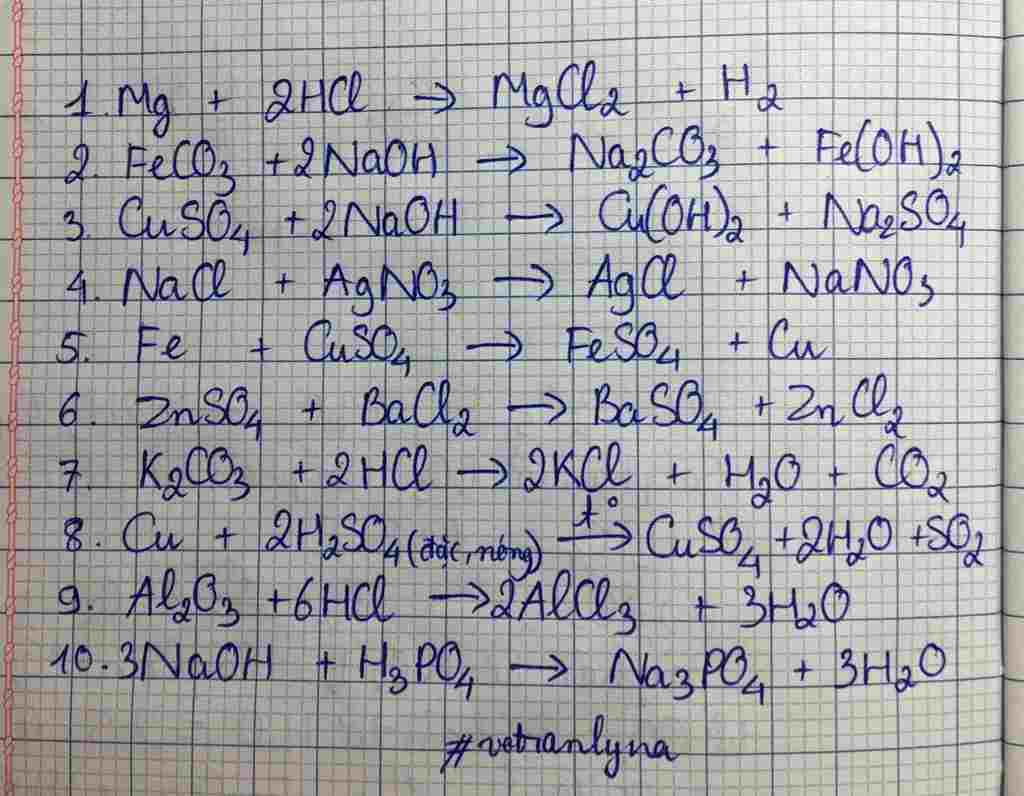 1. Mg + 2HCl → MgCl₂ + H₂
2. FeCO₃ + 2NaOH → Na₂CO₃ + Fe(OH)₂
3. CuSO₄ + 2NaOH → Cu(OH)₂ + Na₂SO₄
4. NaCl + AgNO₃ → AgCl + NaNO₃
5. Fe + CuSO₄ → FeSO₄ + Cu
6. ZnSO₄ + BaCl₂ → BaSO₄ + ZnCl₂
7. K₂CO₃ + 2HCl → 2KCl + H₂O + CO₂
8. Cu + 2H₂SO₄ (đặc, nóng) t°→ CuSO₄ + 2H₂O + SO₂
9. Al₂O₃ + 6HCl → 2AlCl₃ + 3H₂O
10. 3NaOH + H₃PO₄ → Na₃PO₄ + 3H₂O
#votranlyna